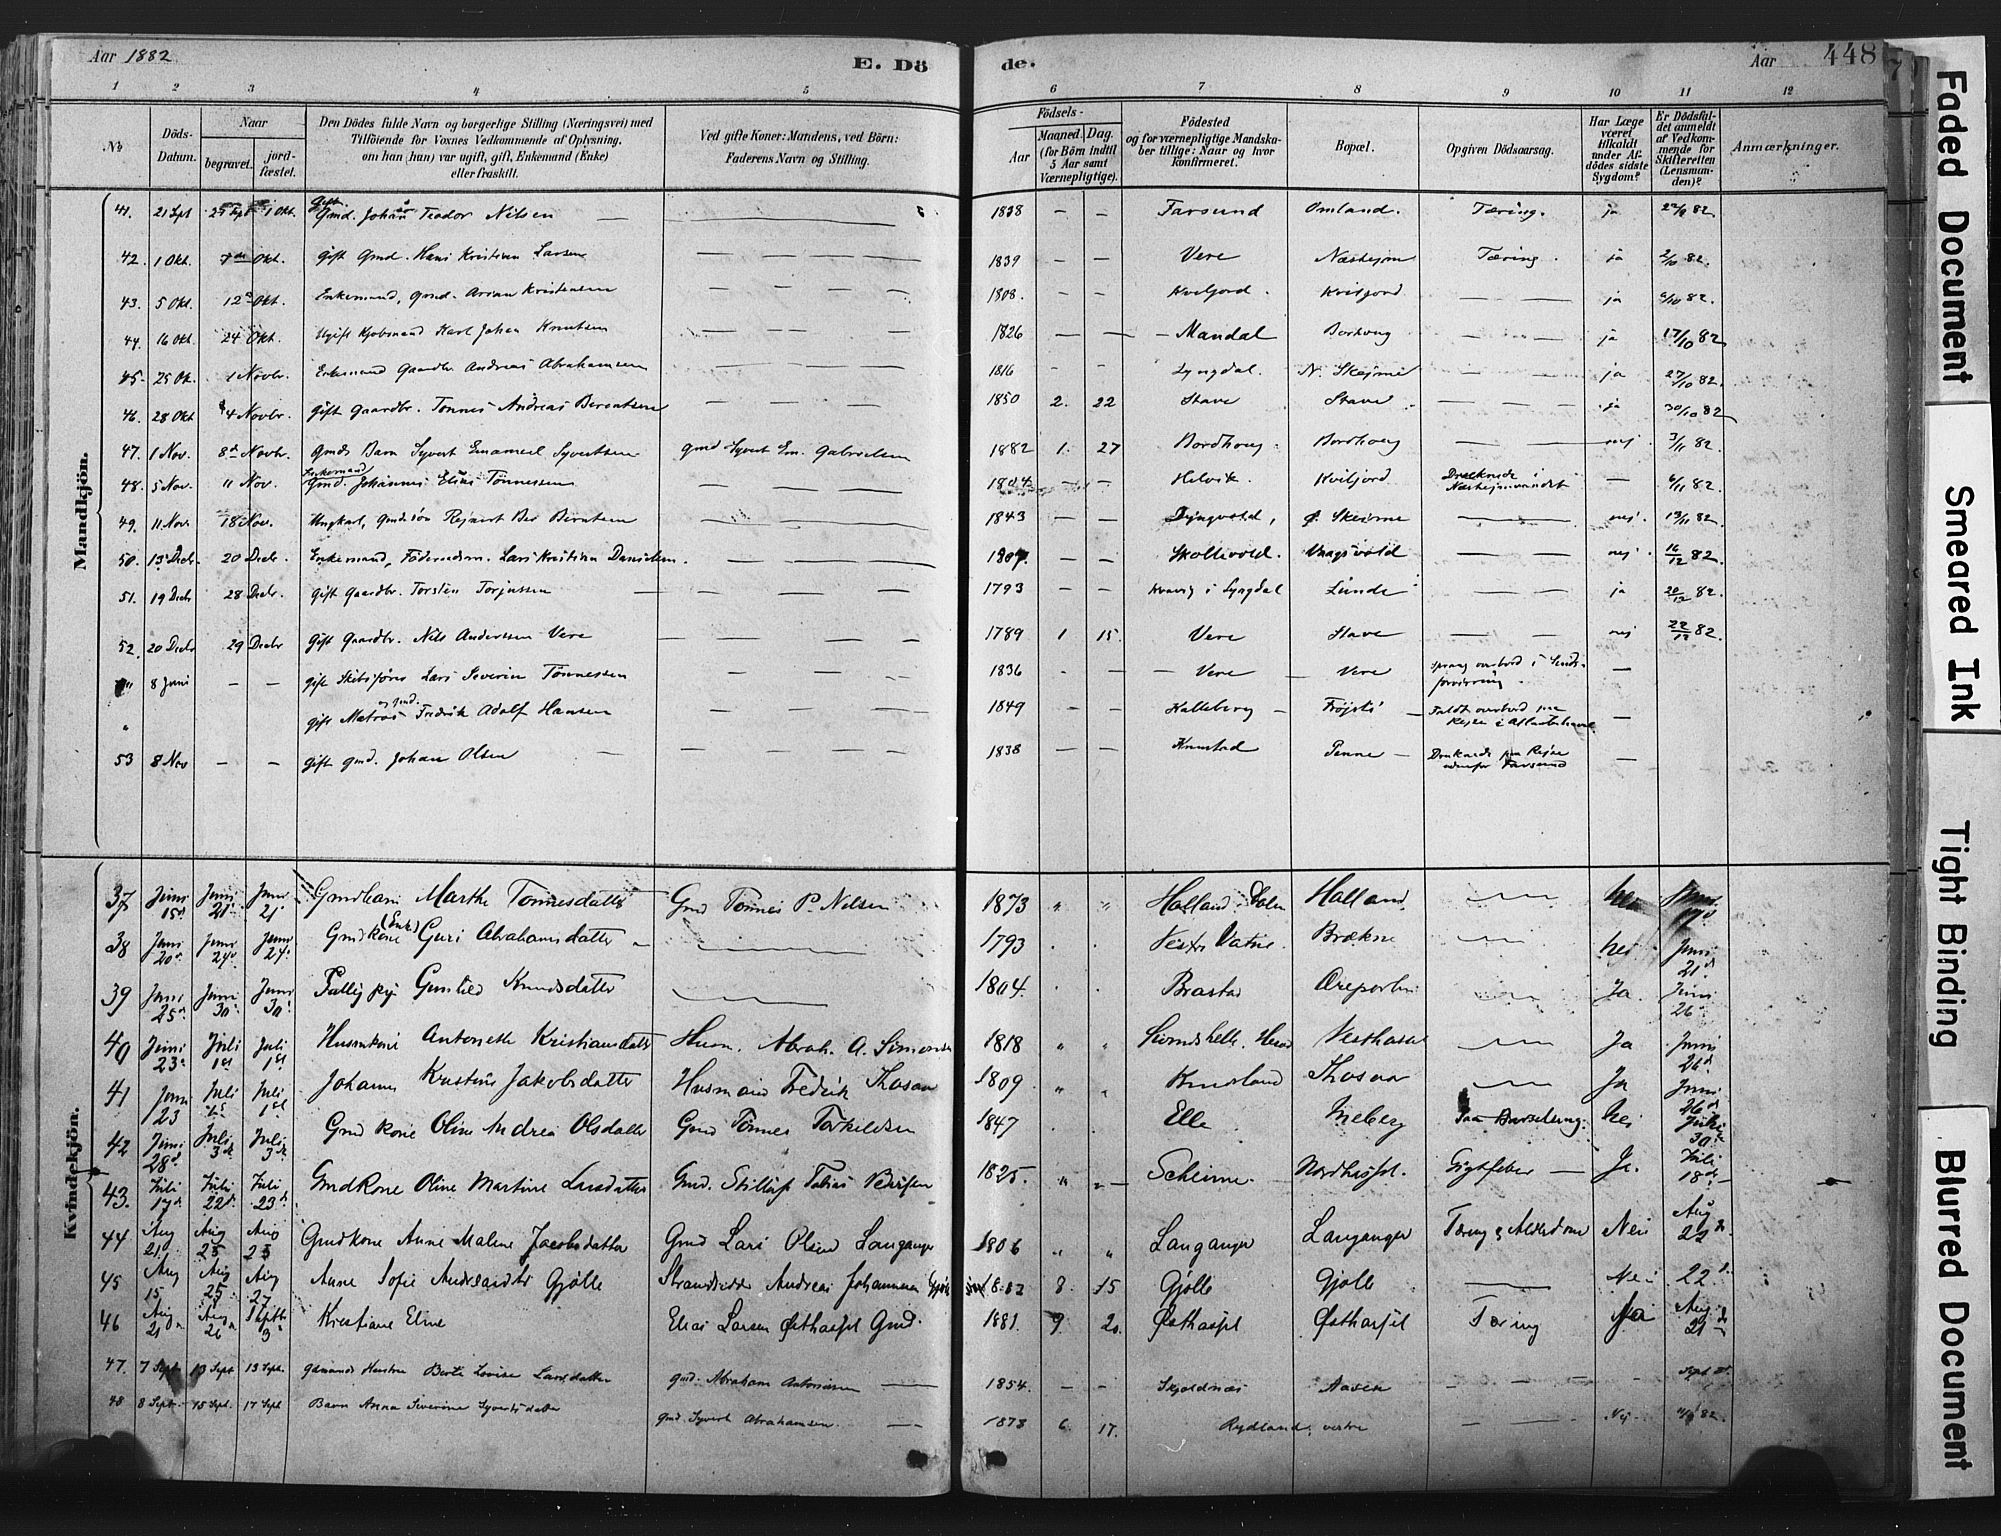 Aar 1882 E. Dö de. Aar 448
1 2 3 4 5 6 7 8 9 10 11 12
No
Döds-Datum.
Naar begravet. jordfæstet.
Den Dödes fulde Navn og borgerlige Stilling (Næringsvei) med Tilföiende for Voxnes Vedkommende af Oplysning, om han (hun) var ugift, gift, Enkemand (Enke) eller fraskilt.
Ved gifte Koner: Mandens, ved Börn: Faderens Navn og Stilling.
Födsels-
Aar Maaned. Dag. (for Börn indtil 5 Aar samt Værnepligtige).
Födested og for værnepligtige Mandskaber tillige: Naar og hvor konfirmeret.
Bopæl.
Opgiven Dödsaarsag.
Har Læge været tilkaldt under Afdödes sidste Sygdom?
Er Dödsfaldet anmeldt af Vedkommende for Skifteretten (Lensmanden)?
Anmærkninger.
Mandkjön.
41. 21 Sept 29 Sept 1 Okt. Gift Gmd. Johan Teodor Nilsen — — 1838 — — Farsund Omland. Tæring. ja 22/9 82.
42. 1 Okt. 7de Okt. gift Gmd. Hans Kristian Larsen — 1839 — — Vere Næshejm Tæring. ja 2/10 82.
43. 5 Okt. 12 Okt. Enkemand, Gmd. Arian Kristensen — 1808. — — Kviljord. Kviljord — ja 6/10 82.
44. 16 Okt. 24 Okt. Ugift Kjøbmand Karl Johan Knutsen — 1826 — — Mandal Borhoug — ja 17/10 82
45. 25 Ok. 1 Novbr. Enkemand Gaardbr. Andreas Abrahamsen — 1816 — — Lyngdal. N. Skejme — ja 27/10 82.
46. 28 Okt 4 Novbr. gift Gaardbr. Tønnes Andreas Berentsen — 1850 2. 22 Stave Stave — ja 30/10 82
47. 1 Nov. 8d Novbr. Gmds Barn Syvert Emanuel Syvertsen gmd Syvert Em. Gabrielsen 1882 1. 27 Bordhoug Bordhoug — nej 3/11 82.
48. 5 Nov. 11 Nov. Enkemand Gmd. Johannes Elias Tønnessen — 1804 — — Helvik. Kviljord Druknede i Næshejmvandet — 6/11 82.
49. 11 Nov. 18 Nov. Ungkarl, Gmdsøn Rejnert Berntsen — 1843 — — Dyngvold, Ø. Skeime — nej 13/11 82.
50. 13 Decbr. 20 Decbr. Enkemand, Føderaadsm. Lars Kristian Danielsen. — 1807. — — Skollevold. Vaagsvold — nej. 16/12 82.
51. 19 Decbr 28 Decbr. gift Gaardbr. Torsten Torjussen — 1793 — — Kvavig i Lyngdal Lunde — ja 20/12 82.
52. 20 Decbr 29 Decbr gift Gaardbr. Nils Andersen Vere — 1789 1 15. Vere Stave — nej 22/12 82.
" 8 Juni — — gift Skibsfører Lars Severin Tønnessen — 1836 — — Vere Vere Sprang overbord i Sinds-forvirring —
" gift Matros og Gmd. Fredrik Adolf Hansen — 1849 — — Kalleberg Frøjsti Faldt overbord paa Rejse i Atlanterhavet —
53 8 Nov — — gift Gmd. Johan Olsen — 1838 — — Knustad Penne — Druknede paa Rejse udenfor Farsund —
Kvindekjön.
37 Juni 15d Juni 21 Juni 21 Gmdbarn Marthe Tønnesdatter Gmd Tønnes P. Nilsen 1873 " " Halland Halland. — nei Juni 17d
38 Juni 20d Juni 24d Juni 24d Gmdkone (Enke) Guri Abrahamsdatter — 1793 Vestre Vatne Brækne — nei Juni 21d
39 Juni 25d Juni 30d Juni 30d Fattig pige Gunhild Knudsdatter — 1804. Brastad Øreporten — Ja. Juni 26
40 Juni 23d Juli 1st Juli 1st Husmkone Antonette Kristiansdatter Husm. Abrah. A. Simonsen 1818 " " Hered Vesthassel — Ja Juni 26d
41 Juni 23 Juli 1st Juli 1st Johanne Kristine Jakobsdatter Husmand Fredrik Thosaa 1809 " " Knudsland Thosaa — Ja Juni 26d
42 Juni 28d Juli 3d Juli 3d Gmd kone Oline Andrea Olsdatter Gmd Tønnes Torkildsen 1847 Elle Meberg Paa Barselseng. nei Juni 30
43. Juli 17d Juli 22d Juli 23d Gmdkone Oline Martine Larsdatter Gmd. Tobias 1825. " " — Scheime. Nordhassel. Gigtfeber — Ja. Juli 18d
44 Aug 21 Aug 25 Aug 25 Gmdkone Anne Malene Jacobsdatter Gmd Lars Olsen Langanger 1806 " " Langanger Langanger Tæring & Alderdom Nei Aug 22d
45 Aug 15 Aug 25 Aug 27 Anne Sofie Andreasdtr Gjølle Strandsidder Andreas Johannesen Gjølle 1882 8. 15 Gjølle Gjølle — Nei 22
46 Aug 21 Aug 26 Septbr 3 Kristiane Eline Elias Larsen Østhassel Gmd. 1881. 9 20. Østhassel Østhassel Tæring Nei Aug 21
47. 7 Sept 13 Sept 13 Sept. Gmands Hustru Berte Lovise Larsdatter gmd. Abraham Antonissen — 1854. — — Skjoldnæs Aasen —
48 8 Sept. 15 Sept. 17 Sept Barn Anna Severine Syvertsdatter gmd. Syvert Abrahamsen. — 1878 6. 17. Rydland, vestre — Nej. 11/9 82.
Faded Document
Smeared Ink
Tight Binding
Blurred Document